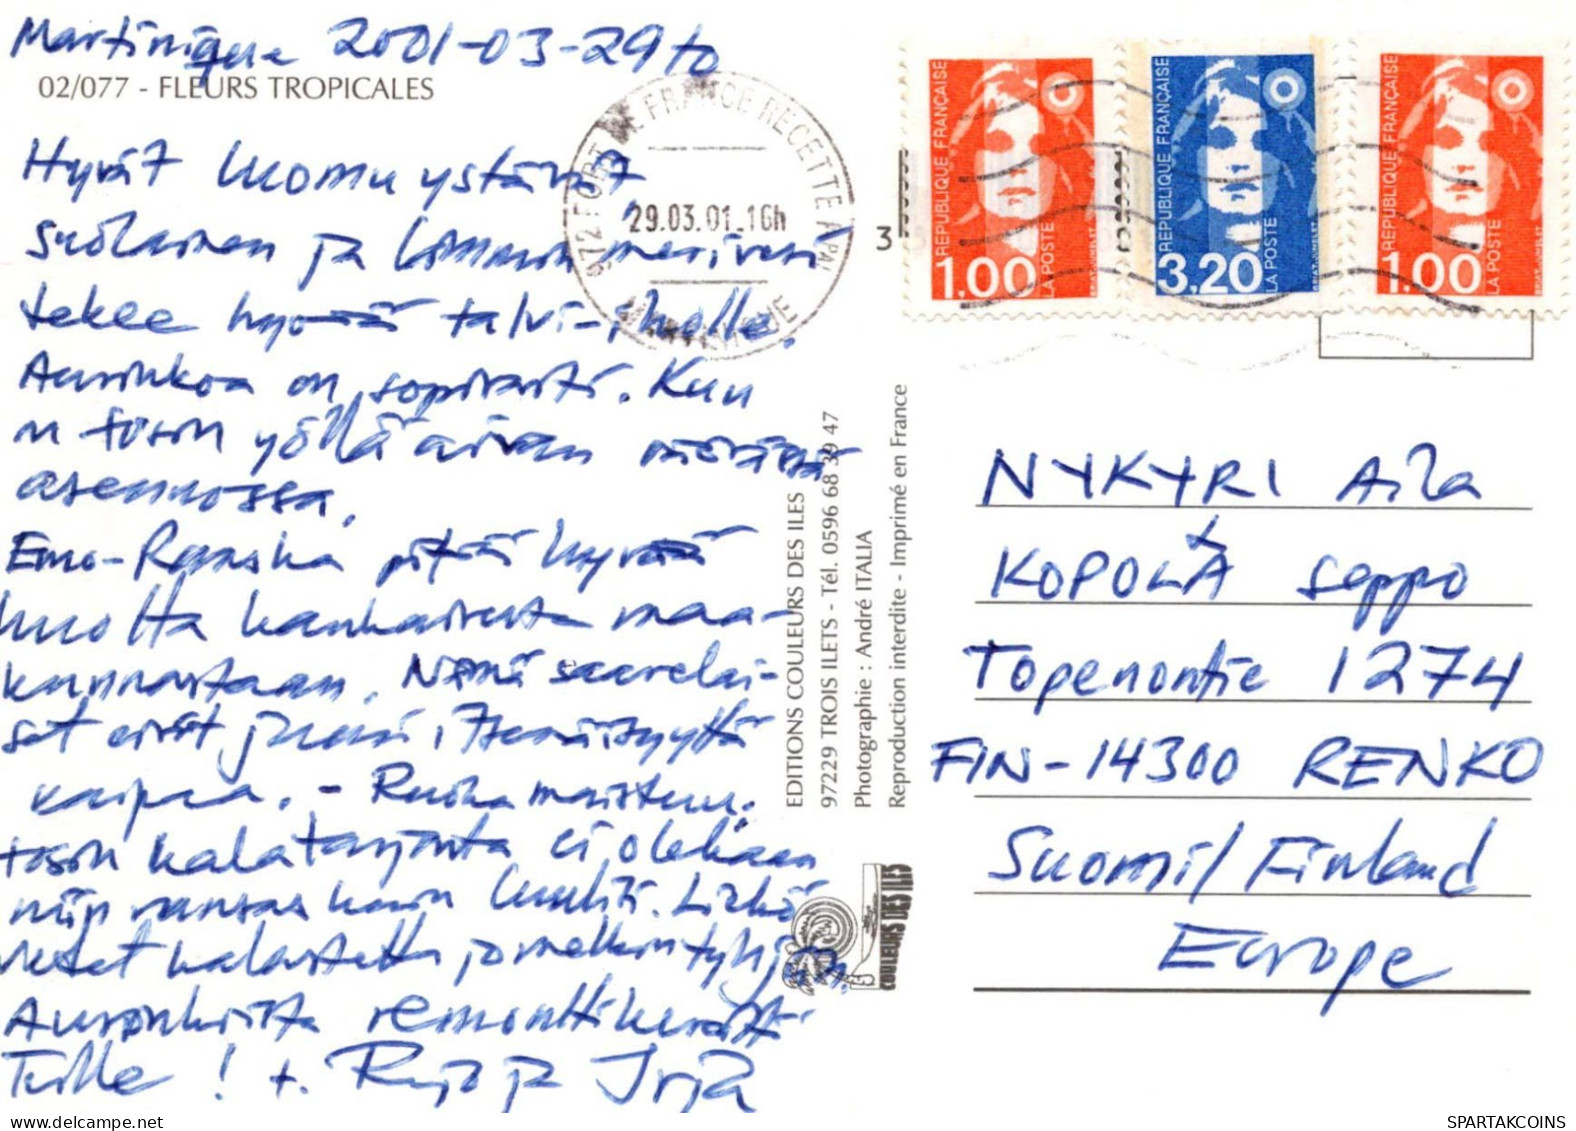 Martinique 2001-03-29 to
02/077 - FLEURS TROPICALES
Hyvät luomuystävät,
suolainen ja lämmin merivesi
tekee hyvää talvi-iholle.
Aurinkoa on sopivasti. Kuu
on tosin yöllä aivan väärässä
asennossa.
Emo-Ranska pitää hyvää
huolta kaukaisesta maa-
kunnastaan. Nämä saarelai-
set eivät juuri itsenäisyyttä
kaipaa. - Ruoka maistuu.
tosin kalatarjonta ei olekaan
niin runsas kuin luulti.
kalastettu jo melkein tyhjiin.
Aurinkoista remonttikevättä
Teille! t. Raija ja Irja
972 FORT DE FRANCE RECETTE PAL
29.03.01_16h
MARTINIQUE
REPUBLIQUE FRANÇAISE
1.00
LA POSTE
REPUBLIQUE FRANÇAISE
3.20
LA POSTE
REPUBLIQUE FRANÇAISE
1.00
LA POSTE
3
EDITIONS COULEURS DES ILES
97229 TROIS ILETS - Tél. 0596 68 39 47
Photographie : André ITALIA
Reproduction interdite - Imprimé en France
COULEURS DES ILES
NYKYRI Aila
KOPOLA Seppo
Topenontie 1274
FIN-14300 RENKO
Suomi/Finland
Europe
SPARTAKCOINS